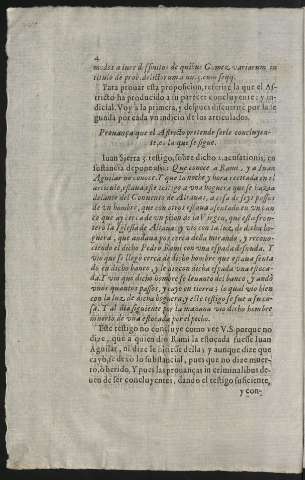 4
modis a iure definitis de quibus Gomez, variarum in
titulo de prob. delictorum a nu. 5. cum seqq.
Para provar esta proposicion, referirè la que el As-
tricto ha producido a su parecer concluyente, y in-
dicial. Voy a la primera, y despues discurrirè por la se
gunda por cada vn indicio de los articulados.
Provança que el Astricto pretende serle concluyen-
te, es la que se sigue.
Iuan Sierra 5. testigo, sobre dicho 2. acusationis, en
sustancia depone assi: Que conoce a Rami, y a Iuan
Aguilar no conoce. Y que la noche y hora recitada en el
articulo, estava este testigo a una hoguera que se hazia
delante del Convento de Altavas, a cosa de seys passos
de un hombre, que con otros estava, sentado en un ban
co que ay cerca de un pilon de la Virgen, que està fron-
tero la Iglesia de Altavas: y vio con la luz de dicha ho-
guera, que andava por cerca della mirando, y recono-
ciendo el dicho Pedro Rami con una espada desnuda. Y
vio que se llegò cerca de dicho hombre que estava senta
do en dicho banco, y le diò con dicha espada una estoca-
da. Y vio que dicho hombre se levantò del banco, y andò
unos quantos passos, y cayò en tierra; lo qual vio bien
con la luz de dicha hoguera, y este testigo se fue a su ca-
sa. Y al dia siguiente por la mañana vio dicho hombre
muerto, de una estocada por el pecho.
Este testigo no concluye como vee V.S. porque no
dize, que a quien dio Rami la estocada fuesse Iuan
Aguilar, ni dize le hiriesse della; y aunque dize que
cayò, cessa lo substancial, pues que no dize muer-
to, ò herido. Y pues las provanças in criminalibus de-
uen de ser concluyentes, dando el testigo suficiente,
y con-